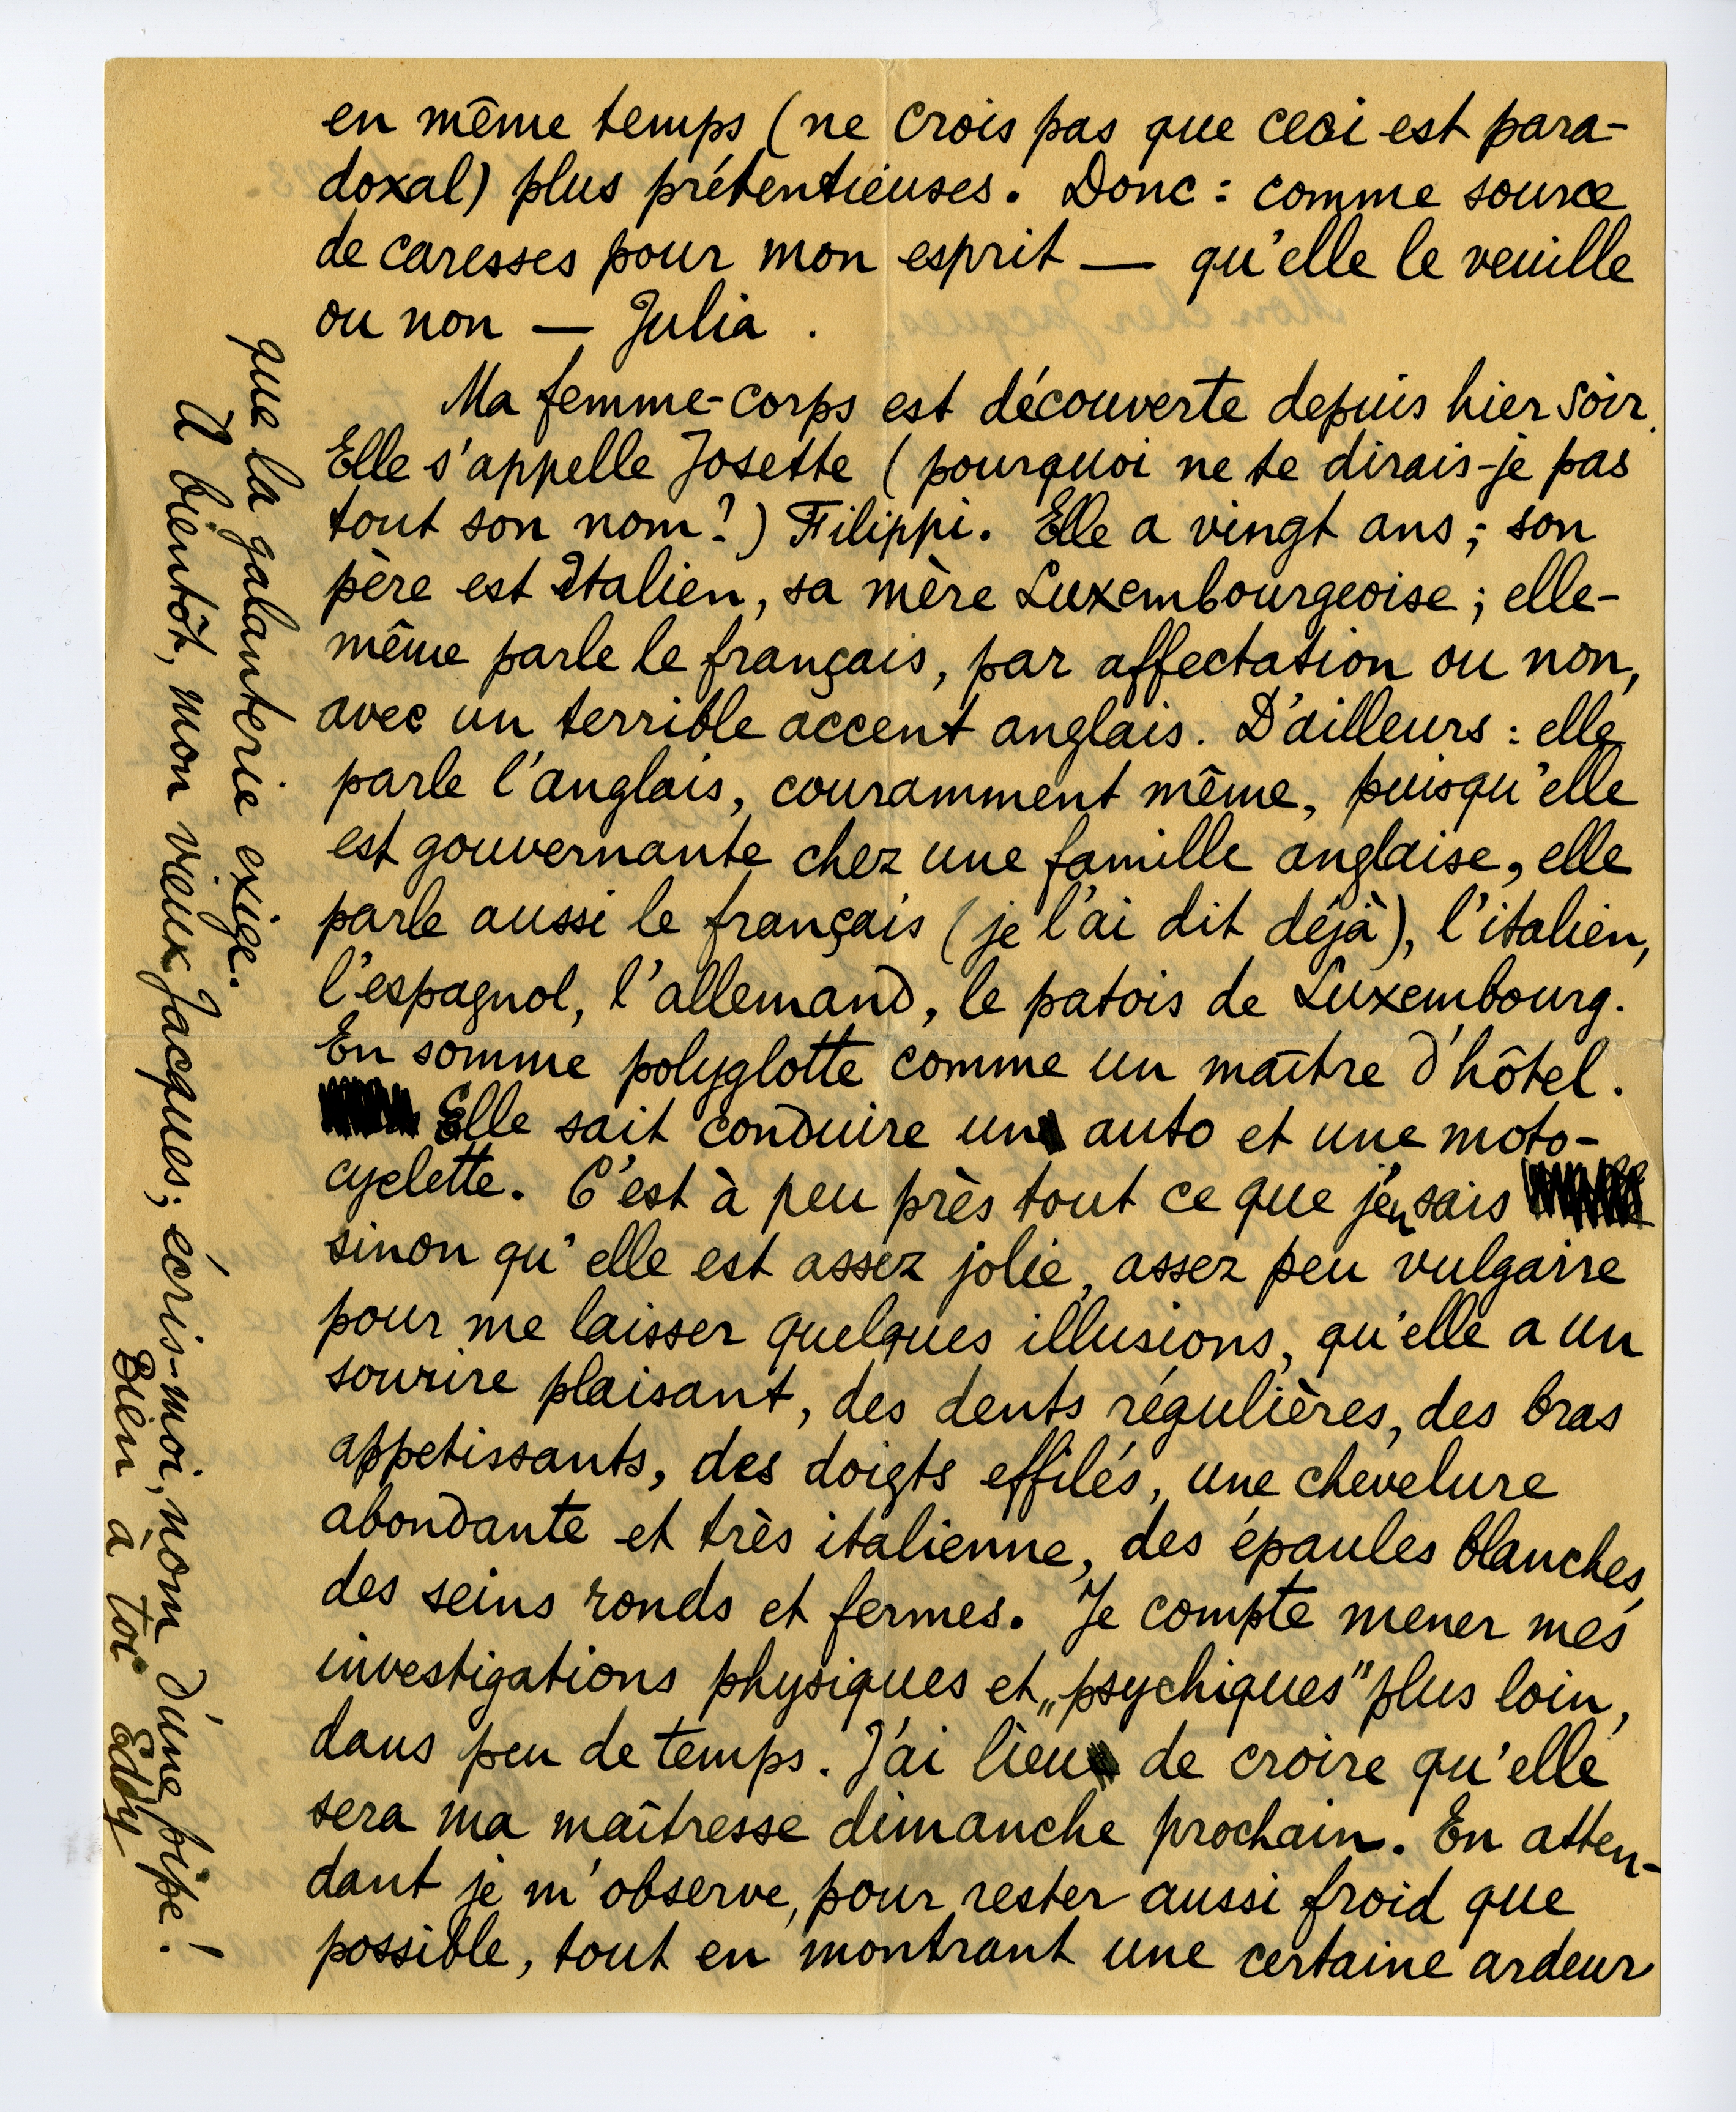 en même temps (ne crois pas que ceci est para-
doxal) plus prétentieuses. Donc : comme source
de caresses pour mon esprit — qu'elle le veuille
ou non — Julia .
Ma femme-corps est découverte depuis hier soir.
Elle s'appelle Josette (pourquoi ne te dirais-je pas
tout son nom?) Filippi. Elle a vingt ans; son
père est Italien, sa mère Luxembourgeoise; elle-
même parle le français, par affectation ou non,
avec un terrible accent anglais. D'ailleurs : elle
parle l'anglais, couramment même, puisqu'elle
est gouvernante chez une famille anglaise, elle
parle aussi le français (je l'ai dit déjà), l'italien,
l'espagnol, l'allemand, le patois de Luxembourg.
En somme polyglotte comme un maître d'hôtel.
Elle sait conduire un auto et une moto-
cyclette. C'est à peu près tout ce que j'en sais
sinon qu'elle est assez jolie, assez peu vulgaire
pour me laisser quelques illusions, qu'elle a un
sourire plaisant, des dents régulières, des bras
appetissants, des doigts effilés, une chevelure
abondante et très italienne, des épaules blanches,
des seins ronds et fermes. Je compte mener mes
investigations physiques et „psychiques" plus loin,
dans peu de temps. J'ai lieu de croire qu'elle
sera ma maîtresse dimanche prochain. En atten-
dant je m'observe, pour rester aussi froid que
possible, tout en montrant une certaine ardeur
que la galanterie exige.
À bientôt, mon vieux Jacques; écris-moi, nom d'une pipe!
Bien à toi Eddy.